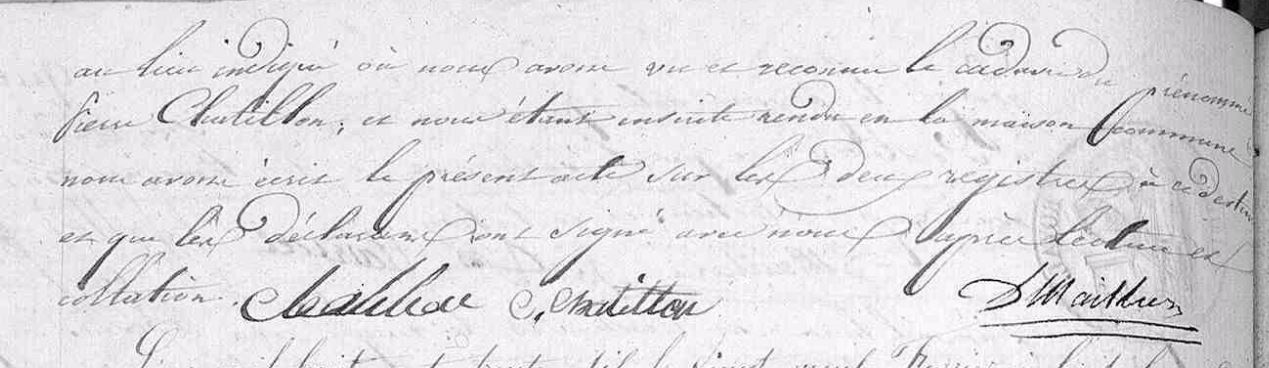 au lieu indiqué où nous avons vu et reconnu le cadavre du prénommé
Pierre Chatillon, et nous étant ensuite rendu en la maison commune
nous avons écrit le présent acte sur les deux registres à ce destinés
et que les déclarans ont signé avec nous après lecture et
collation. Chatillon
L'an mil huit cent trente le vingt neuf